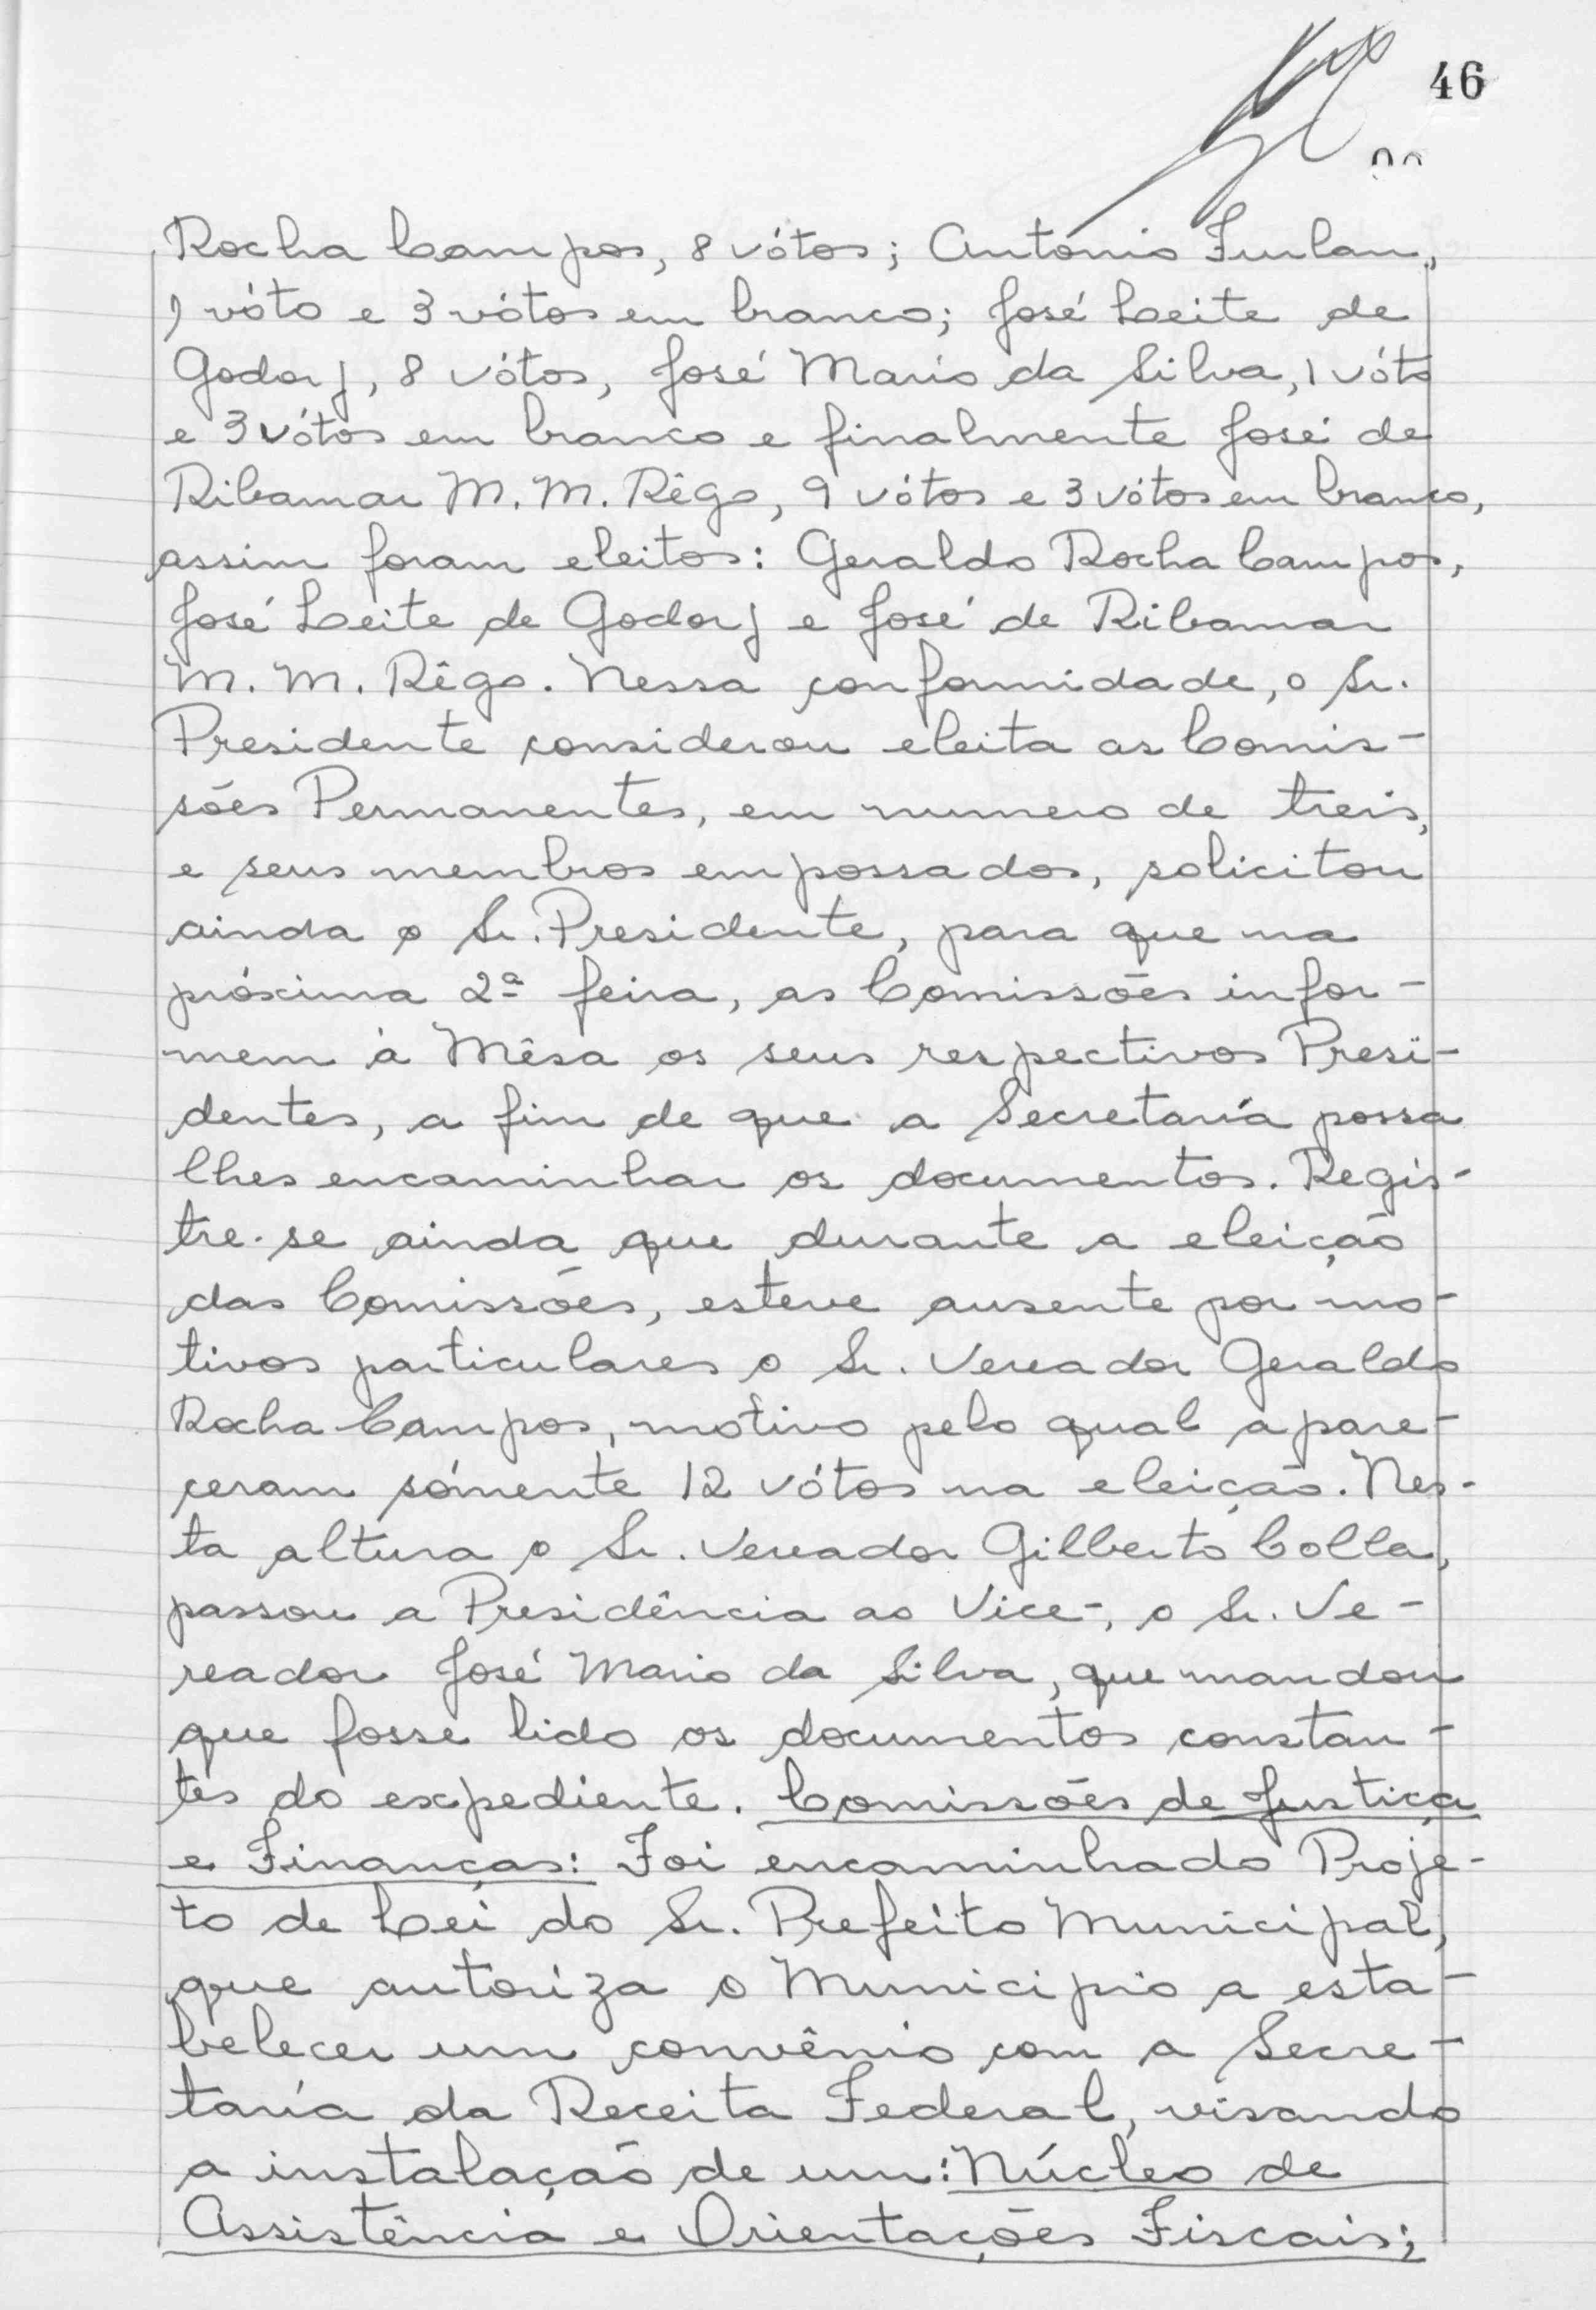 46
Rocha Campos, 8 vótos; Antonio Furlan,
1 vóto e 3 vótos em branco; José Leite de
Godoy, 8 vótos, José Mario da Silva, 1 vóto
e 3 vótos em branco e finalmente José de
Ribamar M. M. Rêgo, 9 vótos e 3 vótos em branco,
assim foram eleitos: Geraldo Rocha Campos,
José Leite de Godoy e José de Ribamar
M. M. Rêgo. Nessa conformidade, o Sr.
Presidente considerou eleita as Comis-
sões Permanentes, em numero de treis,
e seus membros empossados, solicitou
ainda o Sr. Presidente, para que na
próxima 2ª feira, as Comissões infor-
mem à Mêsa os seus respectivos Presi-
dentes, a fim de que a Secretaría possa
lhes encaminhar os documentos. Regis-
tre-se ainda que durante a eleição
das Comissões, esteve ausente por mo-
tivos particulares o Sr. Vereador Geraldo
Rocha Campos, motivo pelo qual apare-
ceram sómente 12 vótos na eleição. Nes-
ta altura o Sr. Vereador Gilberto Colla,
passou a Presidência ao Vice-, o Sr. Ve-
reador José Mario da Silva, que mandou
que fosse lido os documentos constan-
tes do expediente. Comissões de Justiça
e Finanças: Foi encaminhado Proje-
to de Lei do Sr. Prefeito Municipal,
que autoriza o Municipio a esta-
belecer um convênio com a Secre-
taría da Receita Federal, visando
a instalação de um: Núcleo de
Assistência e Orientações Fiscais;